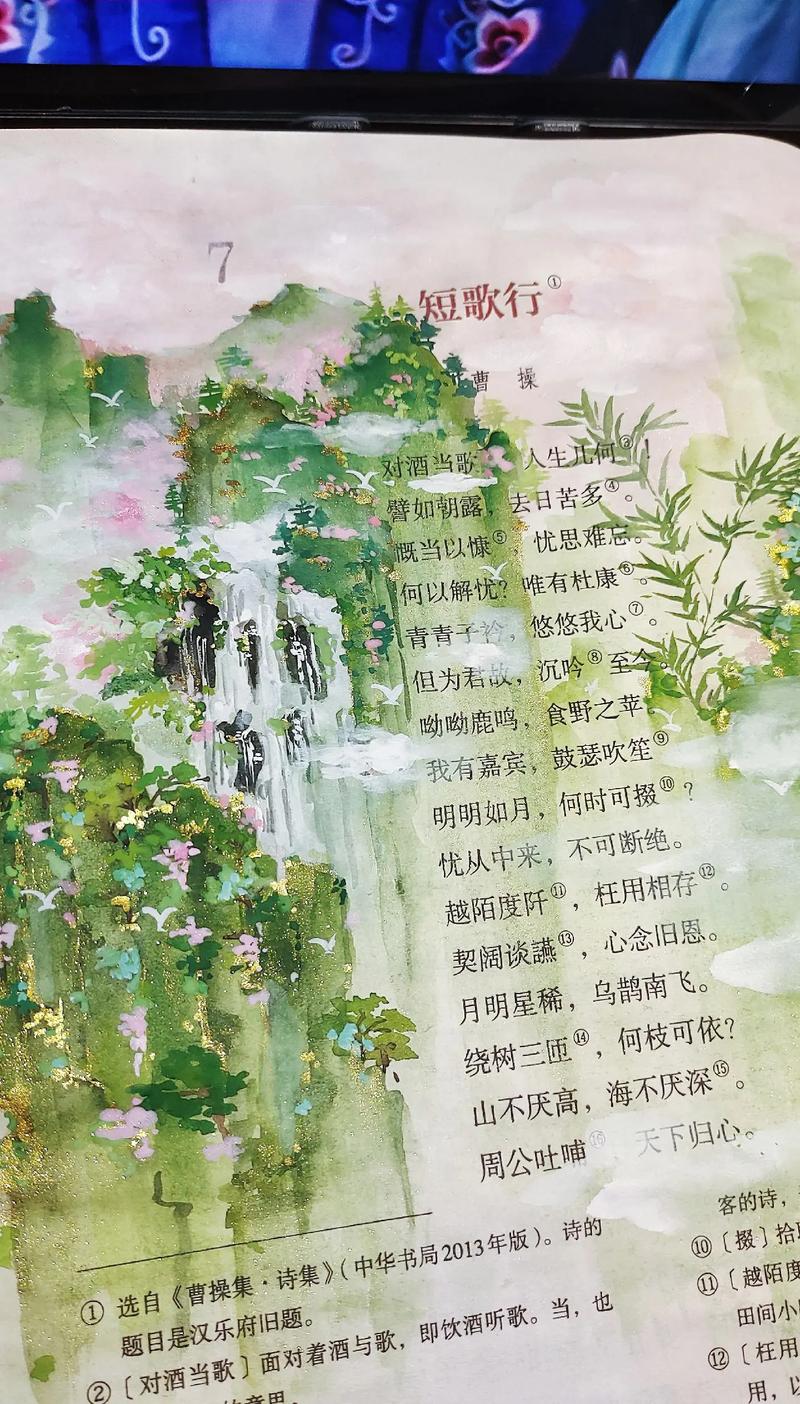 7
短歌行①
曹 操
对酒当歌 人生几何③！
譬如朝露，去日苦多④。
慨当以慷⑤，忧思难忘。
何以解忧？唯有杜康⑥。
青青子衿，悠悠我心⑦。
但为君故，沉吟⑧至今。
呦呦鹿鸣，食野之苹。
我有嘉宾，鼓瑟吹笙⑨
明明如月，何时可掇⑩？
忧从中来，不可断绝。
越陌度阡⑪，枉用相存⑫。
契阔谈䜩⑬，心念旧恩。
月明星稀，乌鹊南飞。
绕树三匝⑭，何枝可依？
山不厌高，海不厌深⑮。
周公吐哺⑯，天下归心。
① 选自《曹操集·诗集》（中华书局2013年版）。诗的
题目是汉乐府旧题。
② 〔对酒当歌〕面对着酒与歌，即饮酒听歌。当，也
的意思。
客的诗，
⑩〔掇〕拾
⑪〔越陌度
田间小
⑫〔枉用
用，以